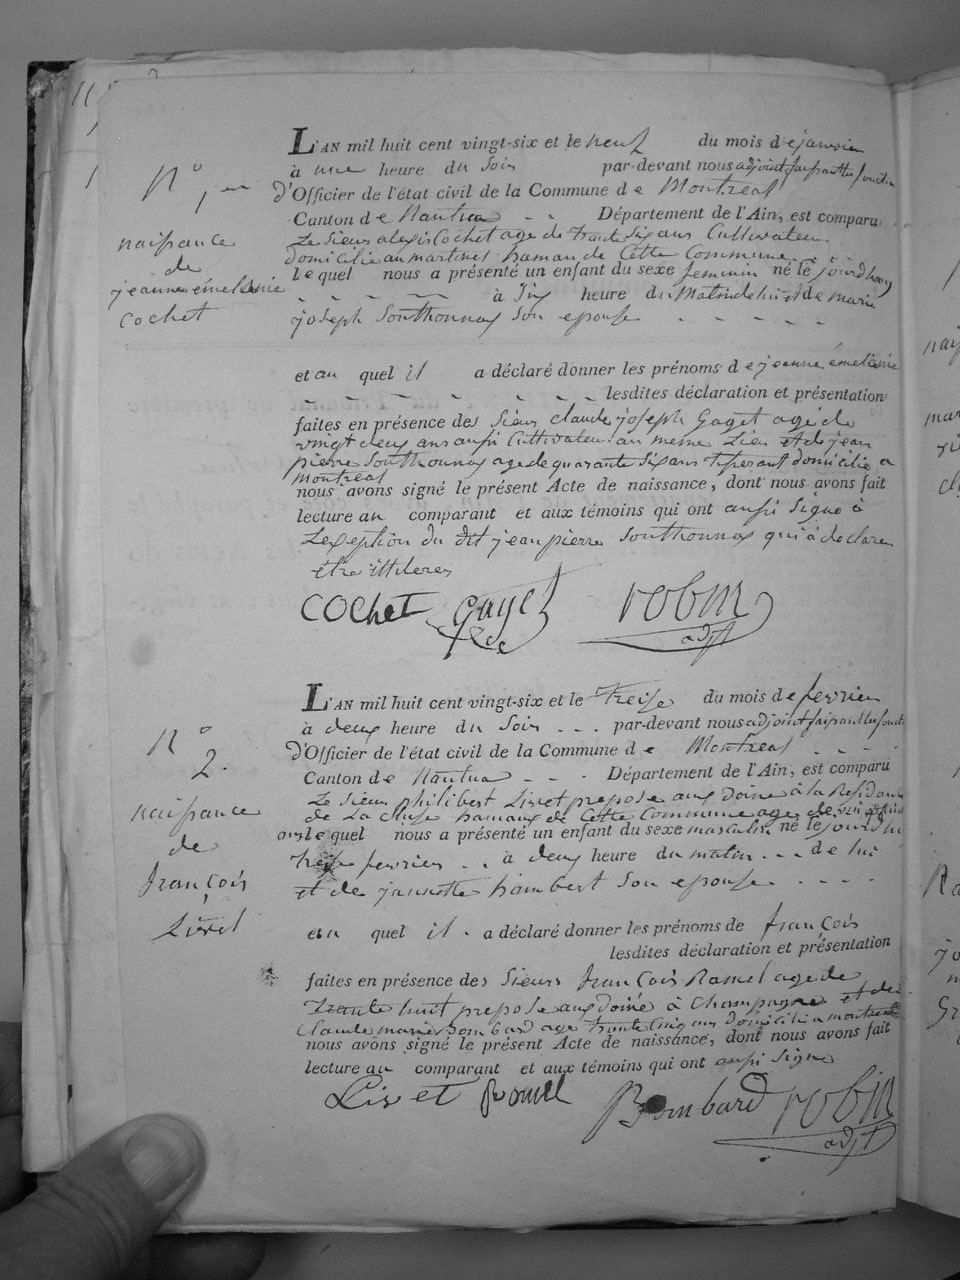 N° 1er
naissance
de
jeanne émelanie
Cochet
L'AN mil huit cent vingt-six et le neuf du mois de janvier
à une heure du soir par-devant nous adjoint faisant les fonction
d'Officier de l'état civil de la Commune de Montreal
Canton de Nantua - - Département de l'Ain, est comparu
Le Sieur alexis Cochet age de trante six ans Cultivateur
domicilié au martinet hamau de Cette Commune
lequel nous a présenté un enfant du sexe feminin né le jourdhuy
à Six heure du Matin de lui et de marie
joseph Southonnax son epouse - - - - -
et au quel il a déclaré donner les prénoms de jeanne émelanie
- - - - - - lesdites déclaration et présentation
faites en présence des Sieur claude joseph Gaget agé de
vingt deux ans aussi Cultivateur au meme Lieu et de jean
pierre Southonnax age de quarante six ans domicilié a
Montreal
nous avons signé le présent Acte de naissance, dont nous avons fait
lecture au comparant et aux témoins qui ont aussi Signé à
Lexseption du dit jean pierre Southonnax qui à déclare
etre illiteres
COCHET gaget robin
adjt
N° 2.
naissance
de
françois
Livet
L'AN mil huit cent vingt-six et le treise du mois de fevrier
à deux heure du Soir - - - par-devant nous adjoint faisant les fonct
d'Officier de l'état civil de la Commune de Montreal - - - -
Canton de Nantua - - - Département de l'Ain, est comparu
Le Sieur philibert Livet preposé aux doine à la Residance
de La Cluse hamaux de Cette Commune age de vingt
ans lequel nous a présenté un enfant du sexe masculin né le jourdhui
treise fevrier - - à deux heure du matin - - - de lui
et de jannette humbert son epouse - - - -
et au quel il - a déclaré donner les prénoms de françois
lesdites déclaration et présentation
faites en présence des Sieurs françois Ramel age de
trante huit preposé aux doine à Champagne et de
Claude marie Bombard age trante cinq ans domicilié a montreal
nous avons signé le présent Acte de naissance, dont nous avons fait
lecture au comparant et aux témoins qui ont aussi Signé
Livet Ramel Bombard robin
adjt